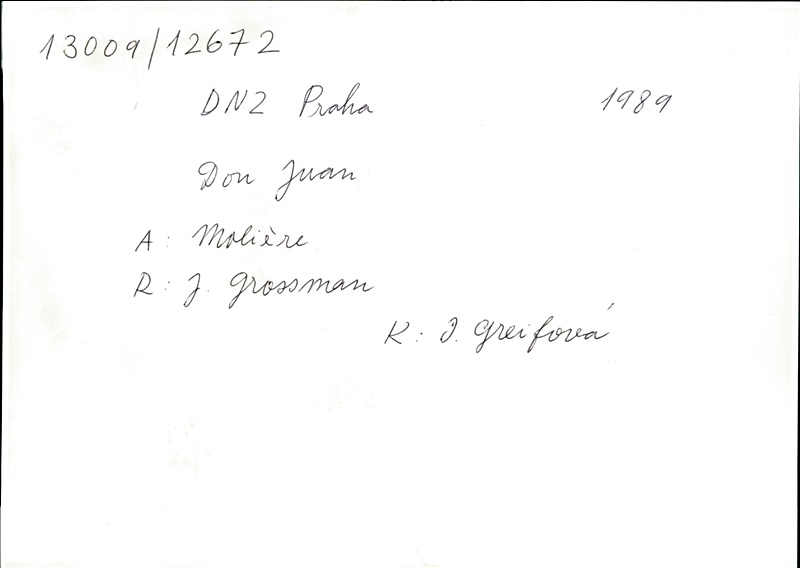 13009/12672
DNZ Praha 1989
Don Juan
A: Molière
R: J. Grossman
K: J. Greifová